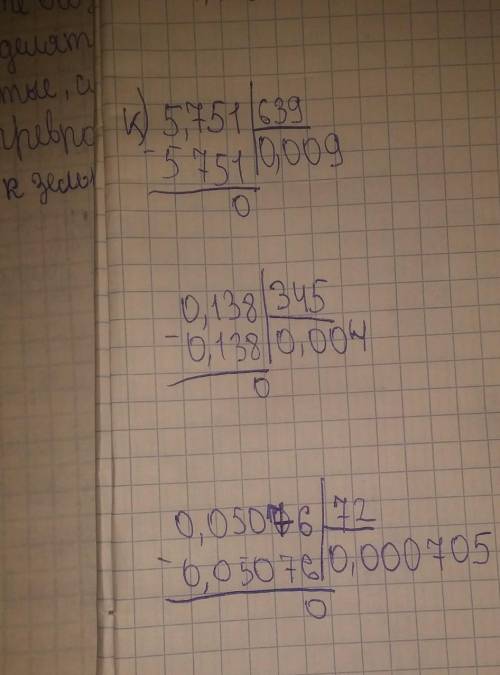 делят
к) 5,751 | 639
- 5 751 | 0,009
0
0,138 | 345
- 0,138 | 0,004
0
0,05076 | 72
- 0,05076 | 0,000705
0